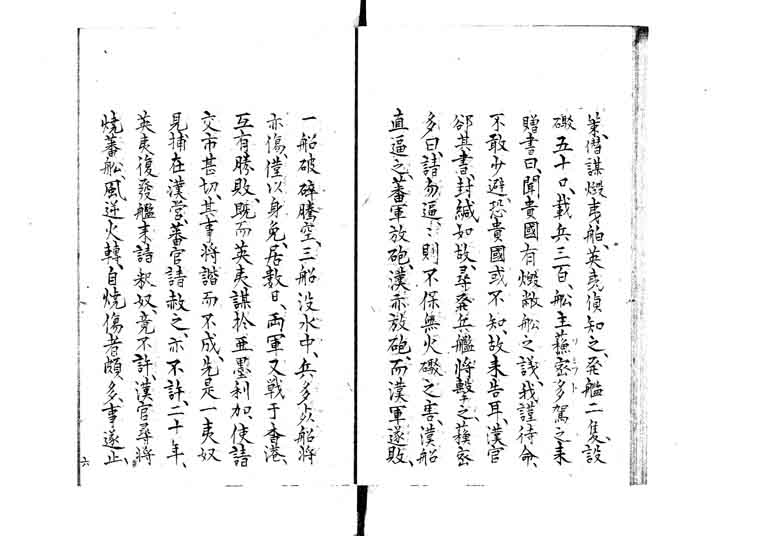 策、潛謀燬夷舶、英夷偵知之、発艦二隻、設
礮五十口、載兵三百、舩主蘓密多駕之来
スミット
贈書曰、聞貴國有燬敝舩之議、我謹待命、
不敢少避、恐貴國或不知、故来告耳、漢官
郤其書、封緘如故、尋発兵艦将擊之、蘓密
多曰、請勿逼、逼則不保無火礮之害、漢船
直逼之、蕃軍放砲、漢亦放砲、而漢軍遂敗、
一船破碎騰空、三船没水中、兵多歿、船将
亦傷、僅以身免、居数日、両軍又戦于香港、
互有勝敗、既而英夷謀於亜墨利加、使請
交市甚切、其事将諧而不成、先是一夷奴
見捕在漢営、蕃官請赦之、亦不許、二十年、
英夷復發艦来請釈奴、竟不許、漢官尋将
焼蕃舩、風逆火轉、自焼傷者頗多、事遂止、
六